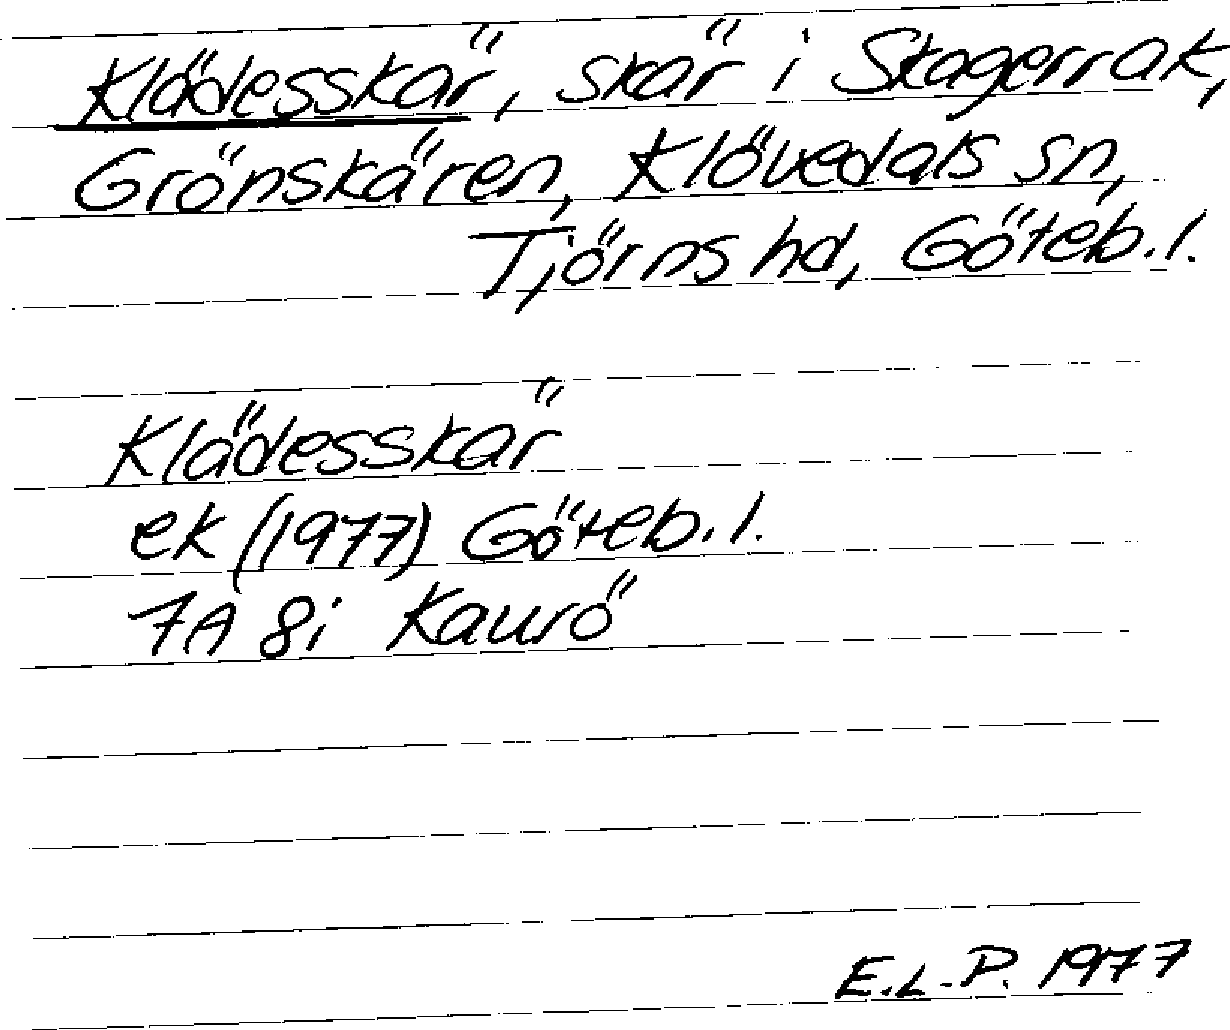 Klädesskär, skär i Skagerrak,
Grönskären, Klövedals sn,
Tjörns hd, Göteb. l.
Klädesskär
ek (1977) Göteb. l.
7A 8i Kaurö
E.L.P. 1977